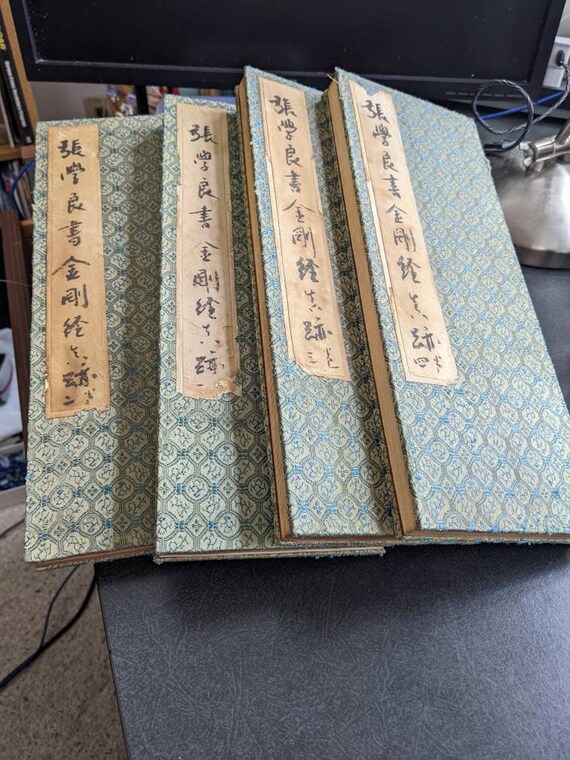 張學良書金剛經真跡卷二
張學良書金剛經真跡一
張學良書金剛經真跡卷三
張學良書金剛經真跡卷四